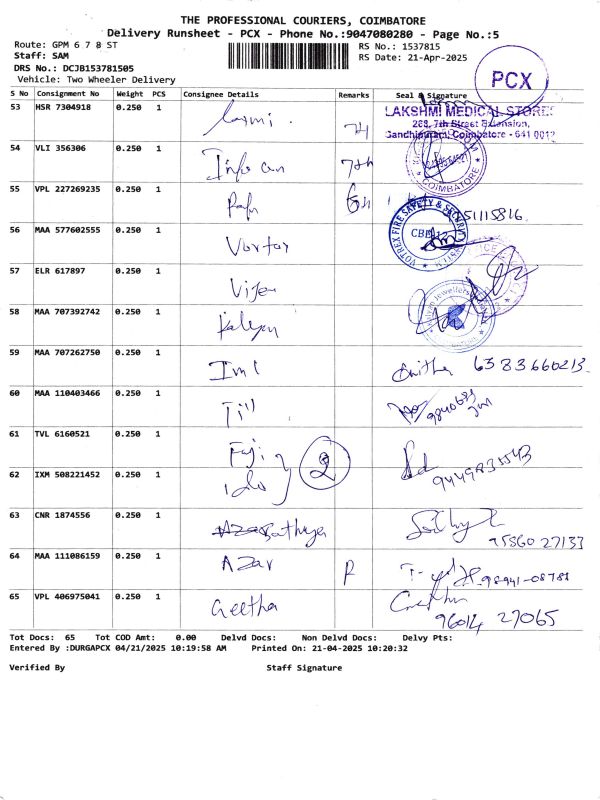 THE PROFESSIONAL COURIERS, COIMBATORE
Delivery Runsheet - PCX - Phone No.:9047080280 - Page No.:5
Route: GPM 6 7 8 ST
Staff: SAM
DRS No.: DCJB153781505
Vehicle: Two Wheeler Delivery
RS No.: 1537815
RS Date: 21-Apr-2025
PCX
S No Consignment No Weight PCS Consignee Details Remarks Seal & Signature
53 HSR 7304918 0.250 1 Laxmi. 7th
LAKSHMI MEDICAL STORES
268, 7th Street Extension,
Gandhipuram, Coimbatore - 641 012
54 VLI 356306 0.250 1 7th
COIMBATORE
55 VPL 227269235 0.250 1
VOTREX FIRE SAFETY & SECURITY
CBE-12
56 MAA 577602555 0.250 1
57 ELR 617897 0.250 1
58 MAA 707392742 0.250 1 Kalyan
Kalyan Jewellers
59 MAA 707262750 0.250 1 Anitha 6383660213
60 MAA 110403466 0.250 1
61 TVL 6160521 0.250 1
2
62 IXM 508221452 0.250 1
63 CNR 1874556 0.250 1 Sathya 95860 27133
64 MAA 111086159 0.250 1 Azar R 98941-08788
65 VPL 406975041 0.250 1 Geetha 96014 27065
Tot Docs: 65 Tot COD Amt: 0.00 Delvd Docs: Non Delvd Docs: Delvy Pts:
Entered By :DURGAPCX 04/21/2025 10:19:58 AM Printed On: 21-04-2025 10:20:32
Verified By Staff Signature